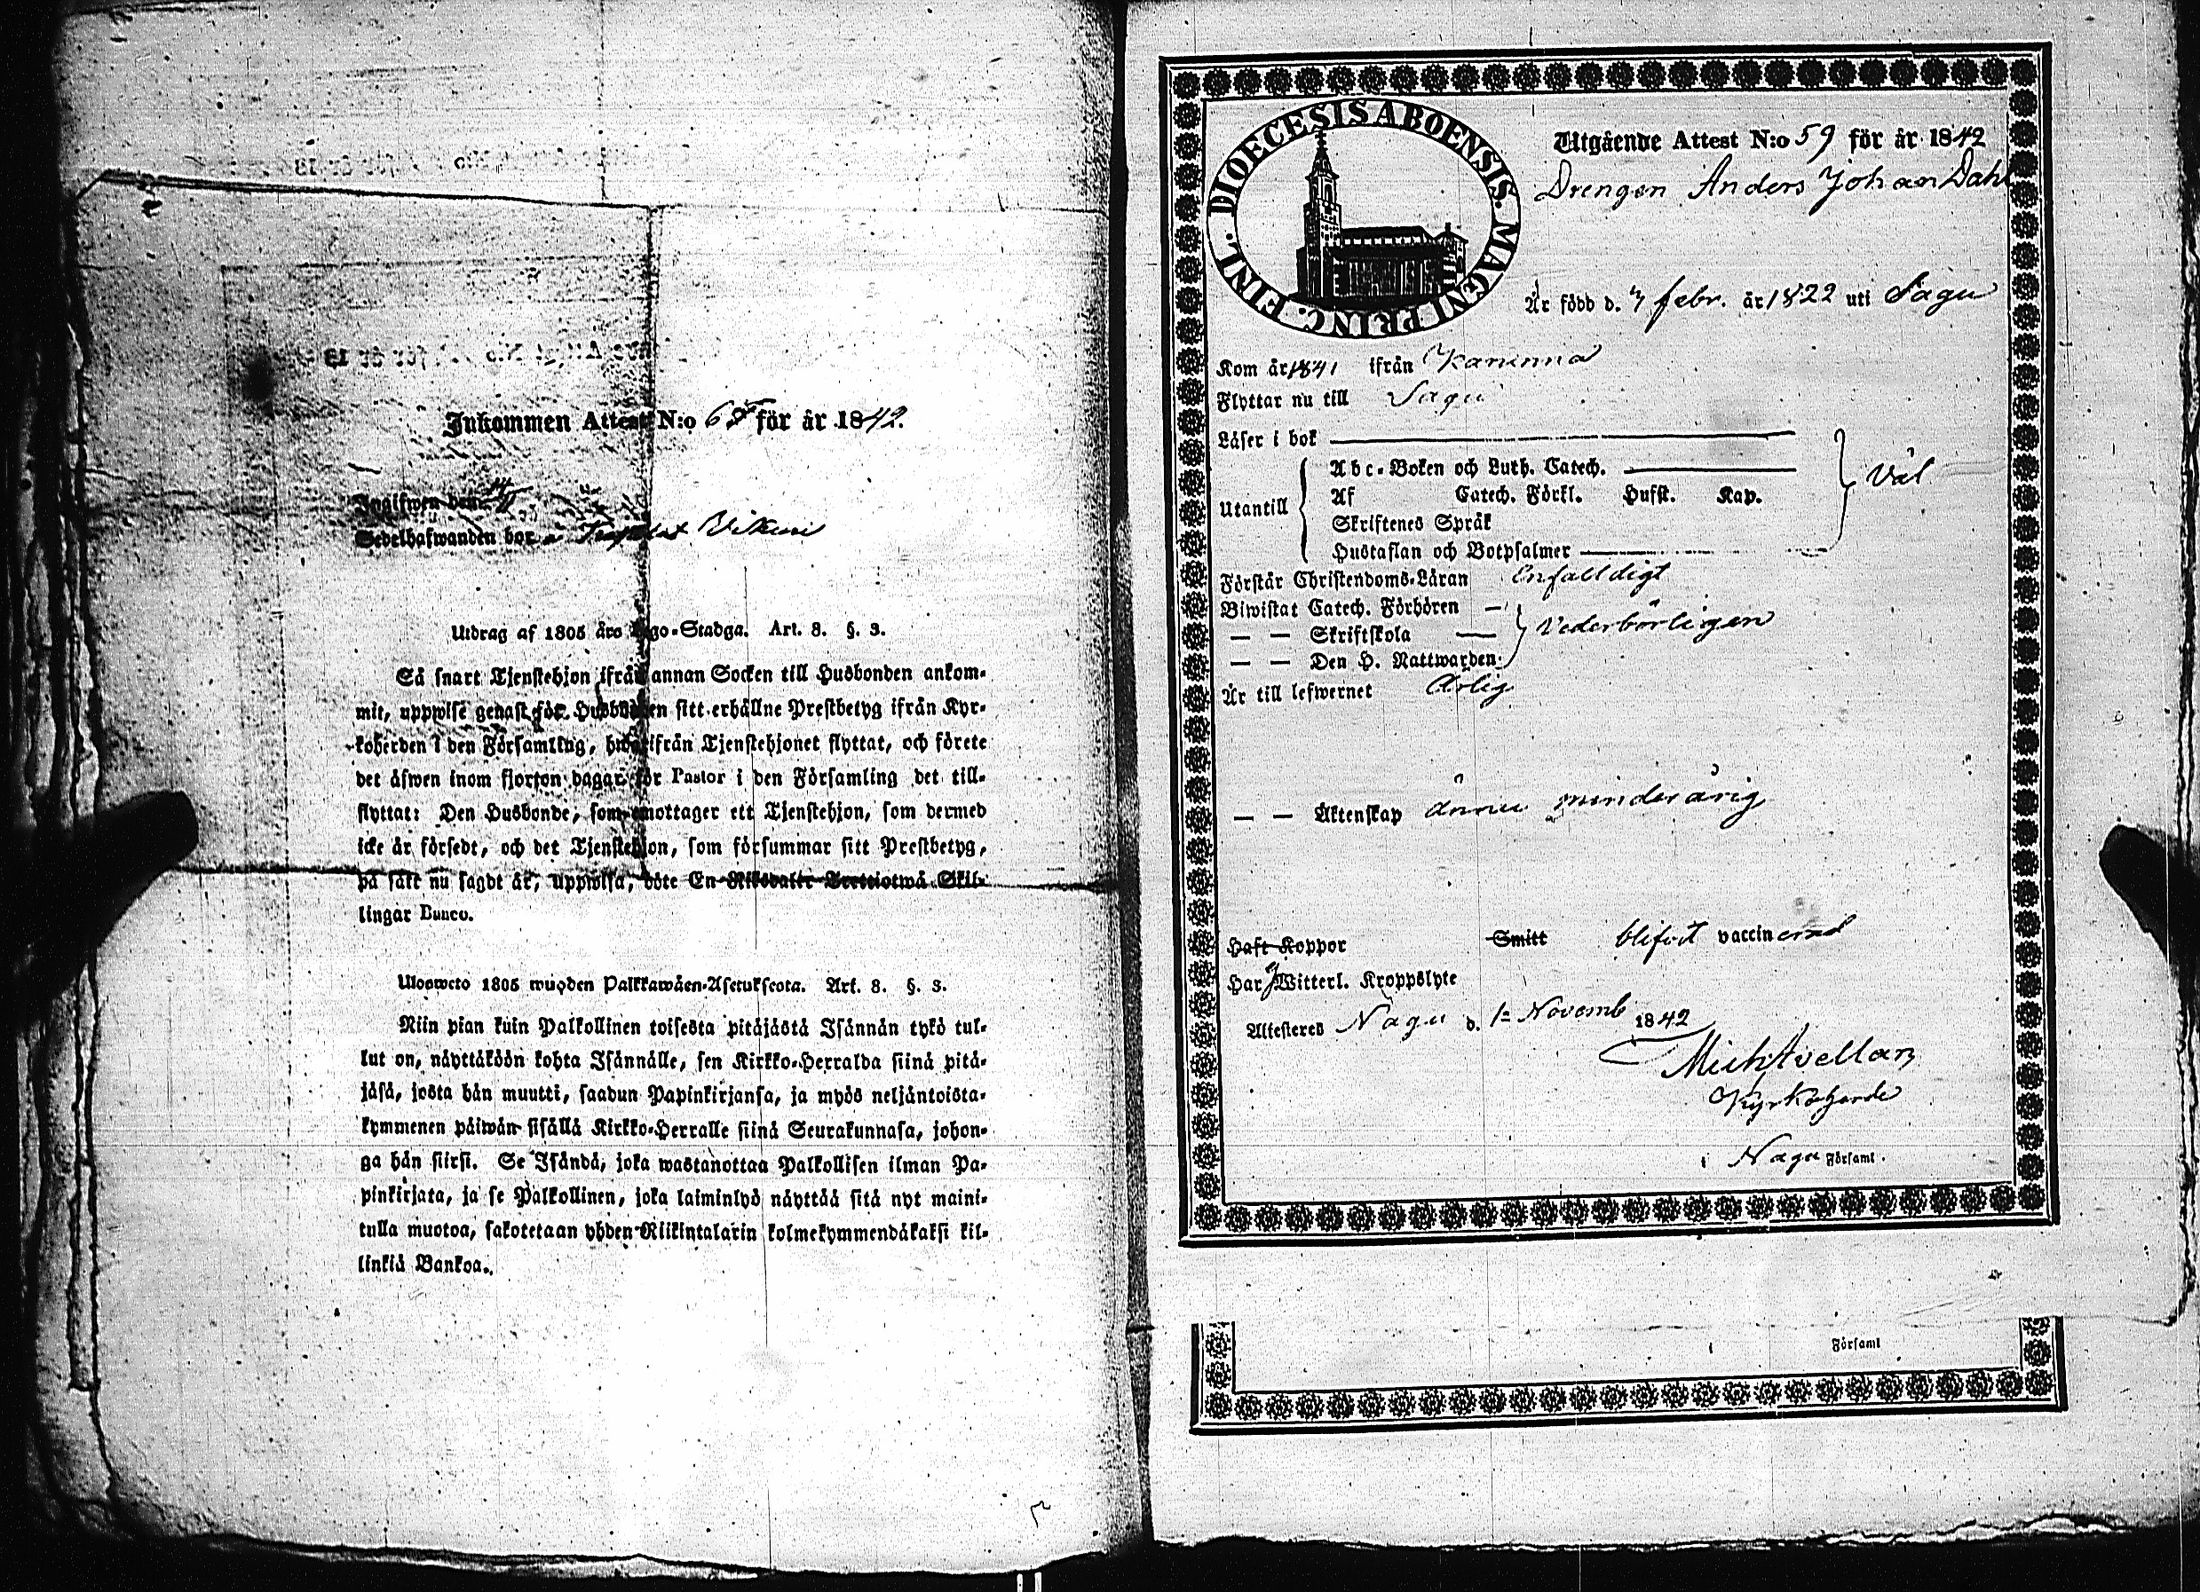 Inkommen Attest N:o 6 för år 1842.
Ingifwen den
Sedelhafwanden bor
Utdrag af 1805 års Lego-Stadga. Art. 8. §. 3.
Så snart Tjenstehjon ifrån annan Socken till Husbonden ankom-
mit, uppwise genast för Husbonden sitt erhållne Prestbetyg ifrån Kyr-
koherden i den Församling, hwarifrån Tjenstehjonet flyttat, och förete
det åfwen inom fjorton dagar för Pastor i den Församling det till-
flyttat: Den Husbonde, som emottager ett Tjenstehjon, som dermed
icke är försedt, och det Tjenstehjon, som försummar sitt Prestbetyg,
på sätt nu sagdt är, uppwisa, böte En Riksdaler Trettiotwå Skil-
lingar Banco.
Ulosweto 1805 wuoden Palkkawäen-Asetuksesta. Art. 8. §. 3.
Niin pian kuin Palkollinen toisesta pitäjästä Isännän tykö tul-
lut on, näyttäköön kohta Isännälle, sen Kirkko-Herralda siinä pitä-
jäsä, josta hän muutti, saadun Papinkirjansa, ja myös neljäntoista-
kymmenen päiwän sisällä Kirkko-Herralle siinä Seurakunnasa, johon-
ga hän siirsi. Se Isändä, joka wastanottaa Palkollisen ilman Pa-
pinkirjata, ja se Palkollinen, joka laiminlyö näyttää sitä nyt maini-
tulla muotoa, sakotetaan yhden Riikintalarin kolmekymmendäkaksi kil-
linkiä Bankoa.
DIOECESIS ABOENSIS. MAGNI PRINC. FINL.
Utgående Attest N:o 59 för år 1842
Drengen Anders Johan Dahl
Är född d. 7 febr. år 1822 uti Sagu
Kom år 1841 ifrån Karuna
Flyttar nu till Sagu
Läser i bok
Utantill
Abc-Boken och Luth. Catech.
Af Catech. Förkl. Hufst. Kap.
Skriftenes Språk
Hustaflan och Botpsalmer
Väl
Förstår Christendoms-Läran Enfalldigt
Biwistat Catech. Förhören
— — Skriftskola
Vederbörligen
— — Den H. Nattwarden
Är till lefwernet Ärlig
— — Äktenskap ännu minderårig
Haft Koppor Smitt blifvit vaccinerad
Har Witterl. Kroppslyte
Attesteres Nagu d. 1 Novemb 1842
Mich Avellan
Kyrkoherde
i Nagu Församl.
i Församl